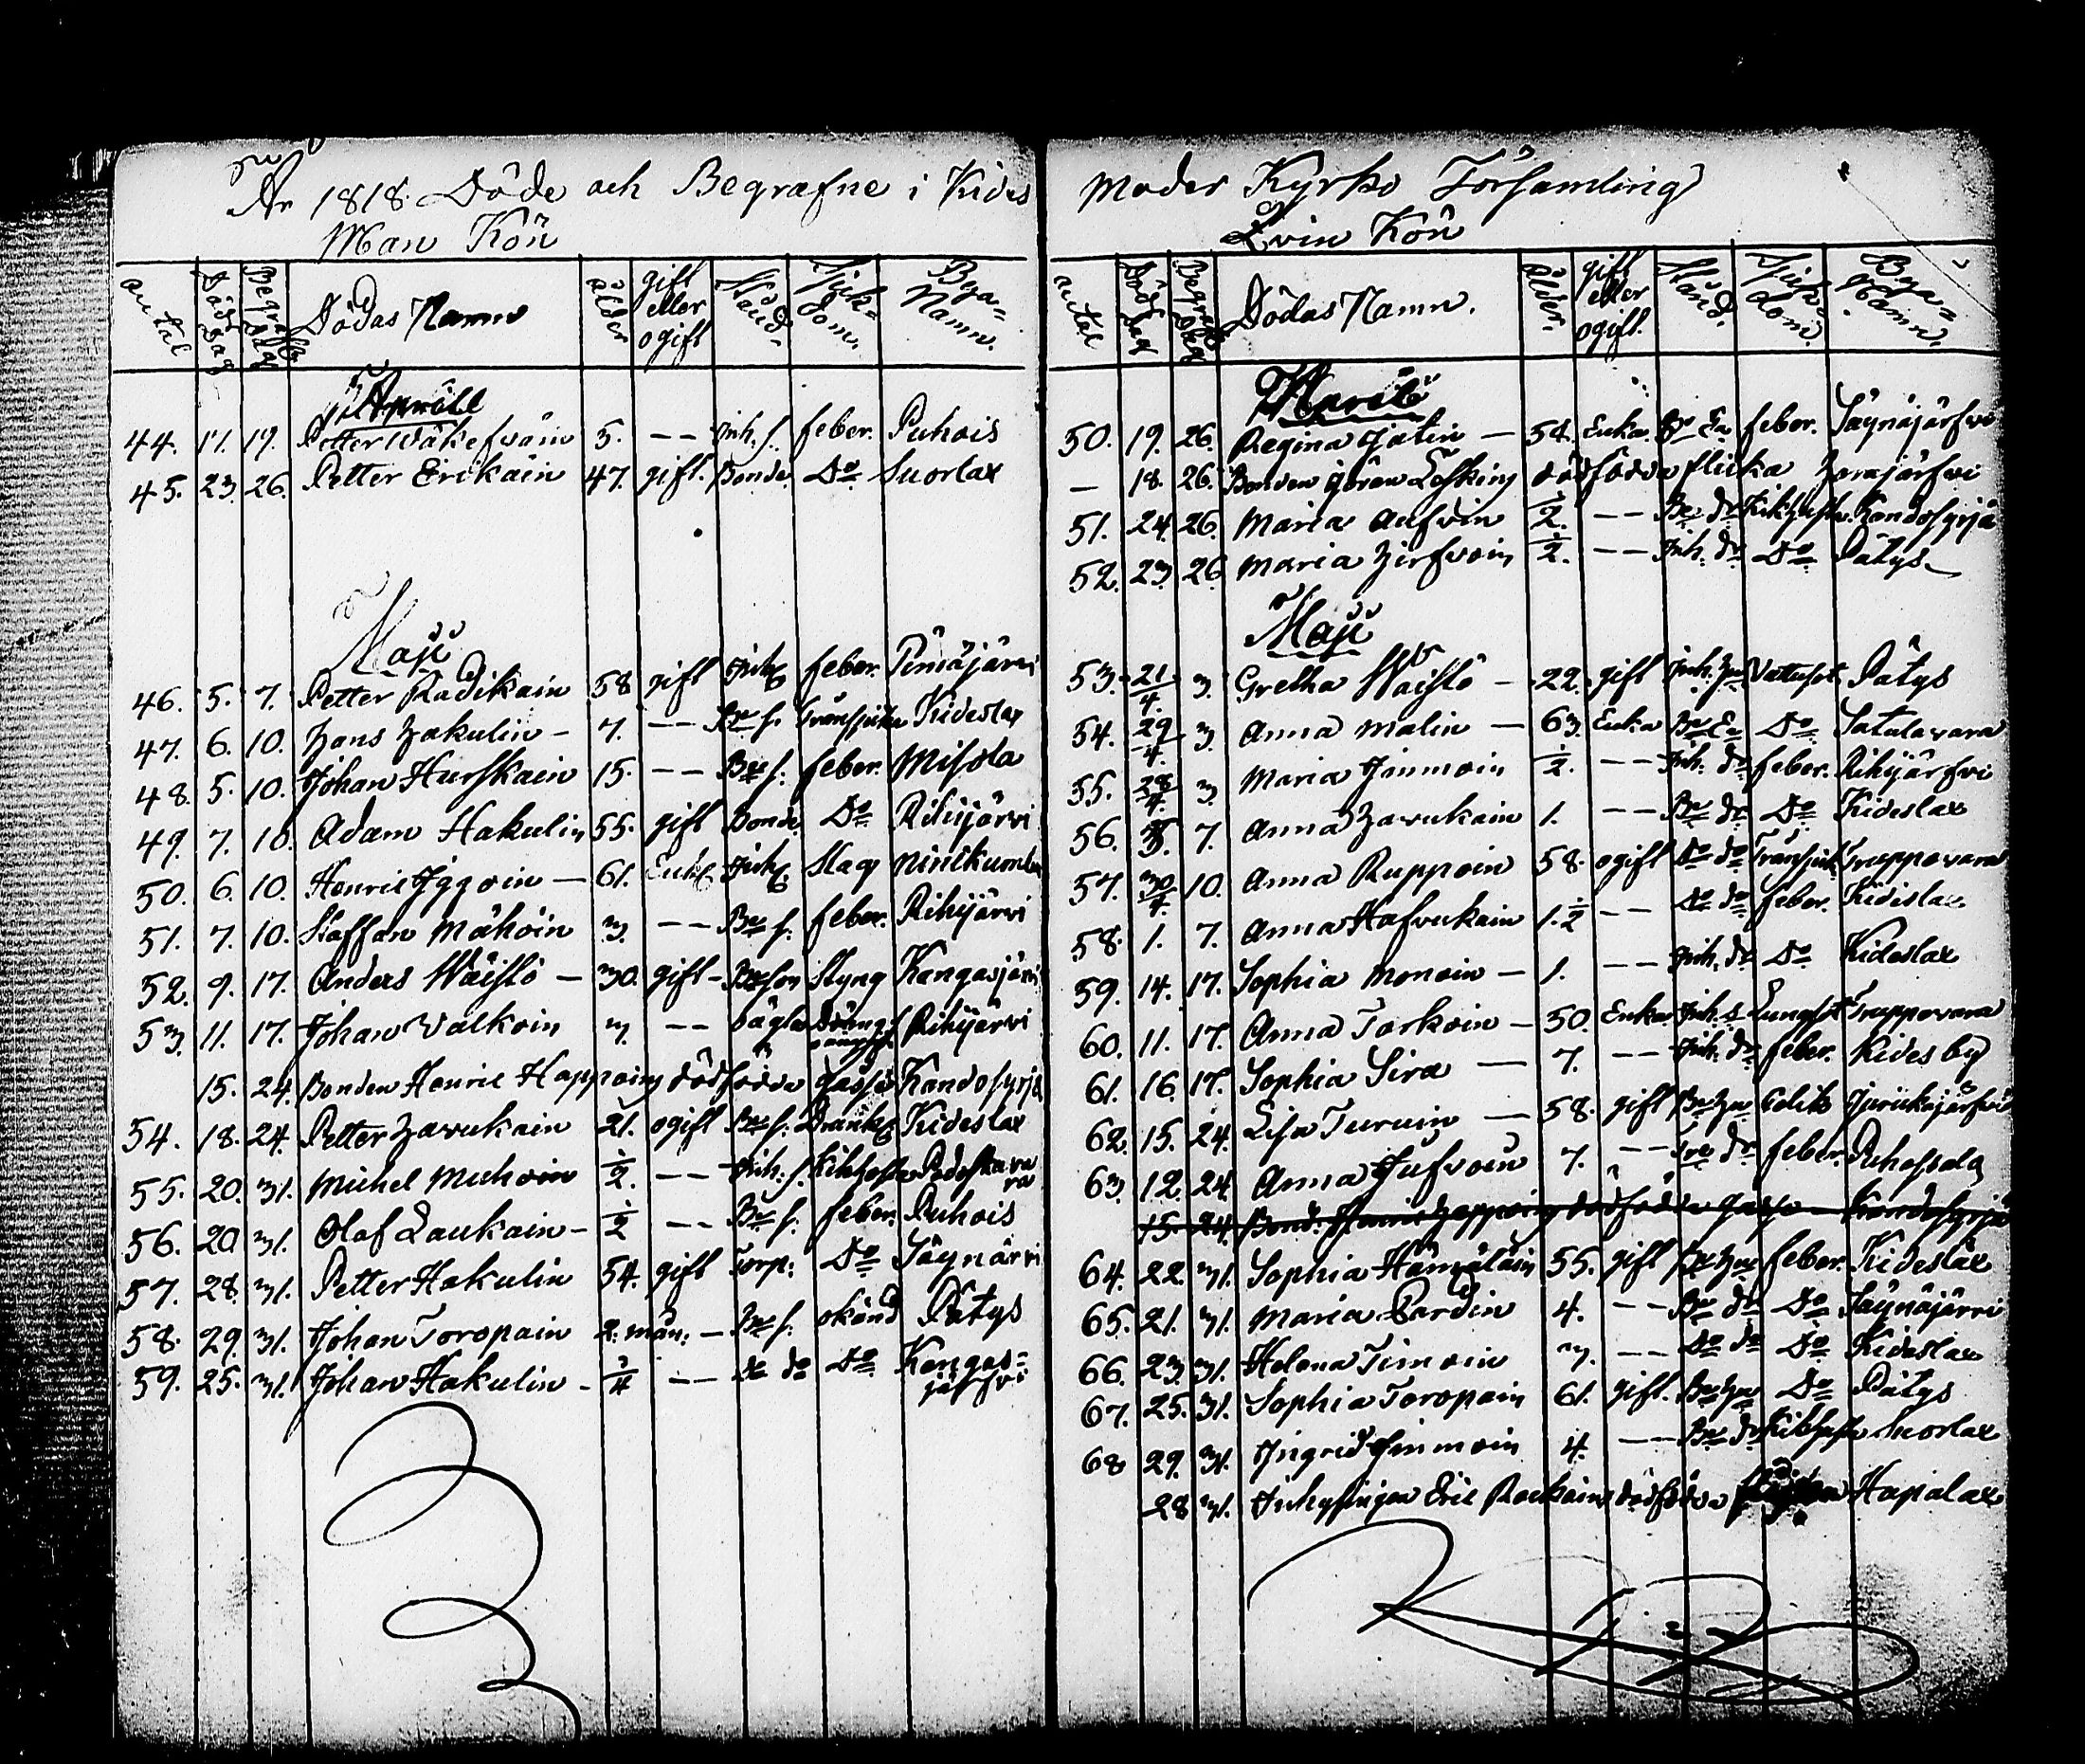 År 1818. Döde och Begrafne i Kides
Man Kön
antal Död Dag Begrafn. Dag Dödas Namn ålder gift eller ogift Stånd. Sjuk-dom. Bya-Namn.
Aprill
44. 17. 19. Petter Wäkefväin 5. -- Inh. s. feber. Puhois
45. 23. 26. Petter Erikäin 47. gift. Bonde Do Suorlax
Maji
46. 5. 7. Petter Radikain 58 gift Inh. feber. Temäjärvi
47. 6. 10. Hans Hakulin - 7. -- Bde s. Trånsjuka Kideslax
48. 5. 10. Johan Hurskain 15. -- Bde s. feber. Misola
49. 7. 10. Adam Hakulin 55. gift Bonde Do Rihijärvi
50. 6. 10. Henric Iggoin - 61. Enkl. Inh. Slag Ninikumbu
51. 7. 10. Staffan Mähöin 3. -- Bde s. feber. Rihijärvi
52. 9. 17. Anders Wäistö - 30. gift - Bde son Styng Kangasjärvi
53. 11. 17. Johan Valkoin 3. -- Rihijärvi
15. 24. Bonden Henric Happoins dödfödde gosse Kondosyrjä
54. 18. 24. Petter Havukain 21. ogift Bde s. Drunk. Kideslax
55. 20. 31. Michel Muhoin ½. -- Inh. s. Kikhosta Podoskavara
56. 20. 31. Olof Laukain - ½ -- Bde s. feber. Puhois
57. 28. 31. Petter Hakulin 54. gift Torp: Do Säynärvi
58. 29. 31. Johan Toropain 2. mån: - Bde s. okänd Pätys
59. 25. 31. Johan Hakulin - ¾ -- do do Do Kangas-järfvi
Moder Kyrko Församling
Qvin Kön
antal Död dag Begrafn. dag Dödas Namn. ålder. gift eller ogift. Stånd. Sjuk-dom. Bya-Namn.
50. 19. 26. Regina Jatin - 54. Enka. Bde En feber. Säynäjärfvi
- 18. 26. Bonden Göran Loskins dödfödda flicka
51. 24. 26. Maria Aufvin ½. -- Bde dr Kikhosta. Kondosyrjä
52. 23. 26 Maria Hirfvoin ½. -- Inh. dr Do Pätys
Maji
53. 21/4. 3. Gretha Waistö - 22. gift Inh. Hu Vattusot Pätys
54. 29/4. 3. Anna Malin - 63. Enka Bde En Do Satulavara
55. 28/4. 3. Maria Immoin ½. -- Inh. dr feber. Rihijärfvi
56. 5. 7. Anna Havukain 1. -- Bde dr Do Kideslax
57. 30/4. 10. Anna Ruppoin 58. ogift Do do Trånsjuk. Truppovara
58. 1. 7. Anna Hafvukain 1.½ -- Do do feber. Kideslax
59. 14. 17. Sophia Monoin - 1. -- Inh. dr Do Kideslax
60. 11. 17. Anna Torkoin - 50. Enka Inh. Lungsot Truppovara
61. 16. 17. Sophia Sira - 7. -- Inh. dr feber. Kides by
62. 15. 24. Lisa Turuin - 58. gift Bde Hu Colik
63. 12. 24. Anna Jufvoin 7. -- dr feber. Puhossala
15. 24. Bond. Henric Happoins dödfödde gosse - Kondosyrjä
64. 22. 31. Sophia Hämäläin 55. gift Bde Hu feber. Kideslax
65. 21. 31. Maria Pardin 4. -- Bde dr Do Säynäjärvi
66. 23. 31. Helena Timoin 3. -- Do do Do Kideslax
67. 25. 31. Sophia Toropain 61. gift. Bde Hu Do Pätys
68 29. 31. Ingrid Immoin 4. -- Bde dr Kikhosta Suorlax
28 31. Inhysingen Eric Rackains dödfödda Hapalax